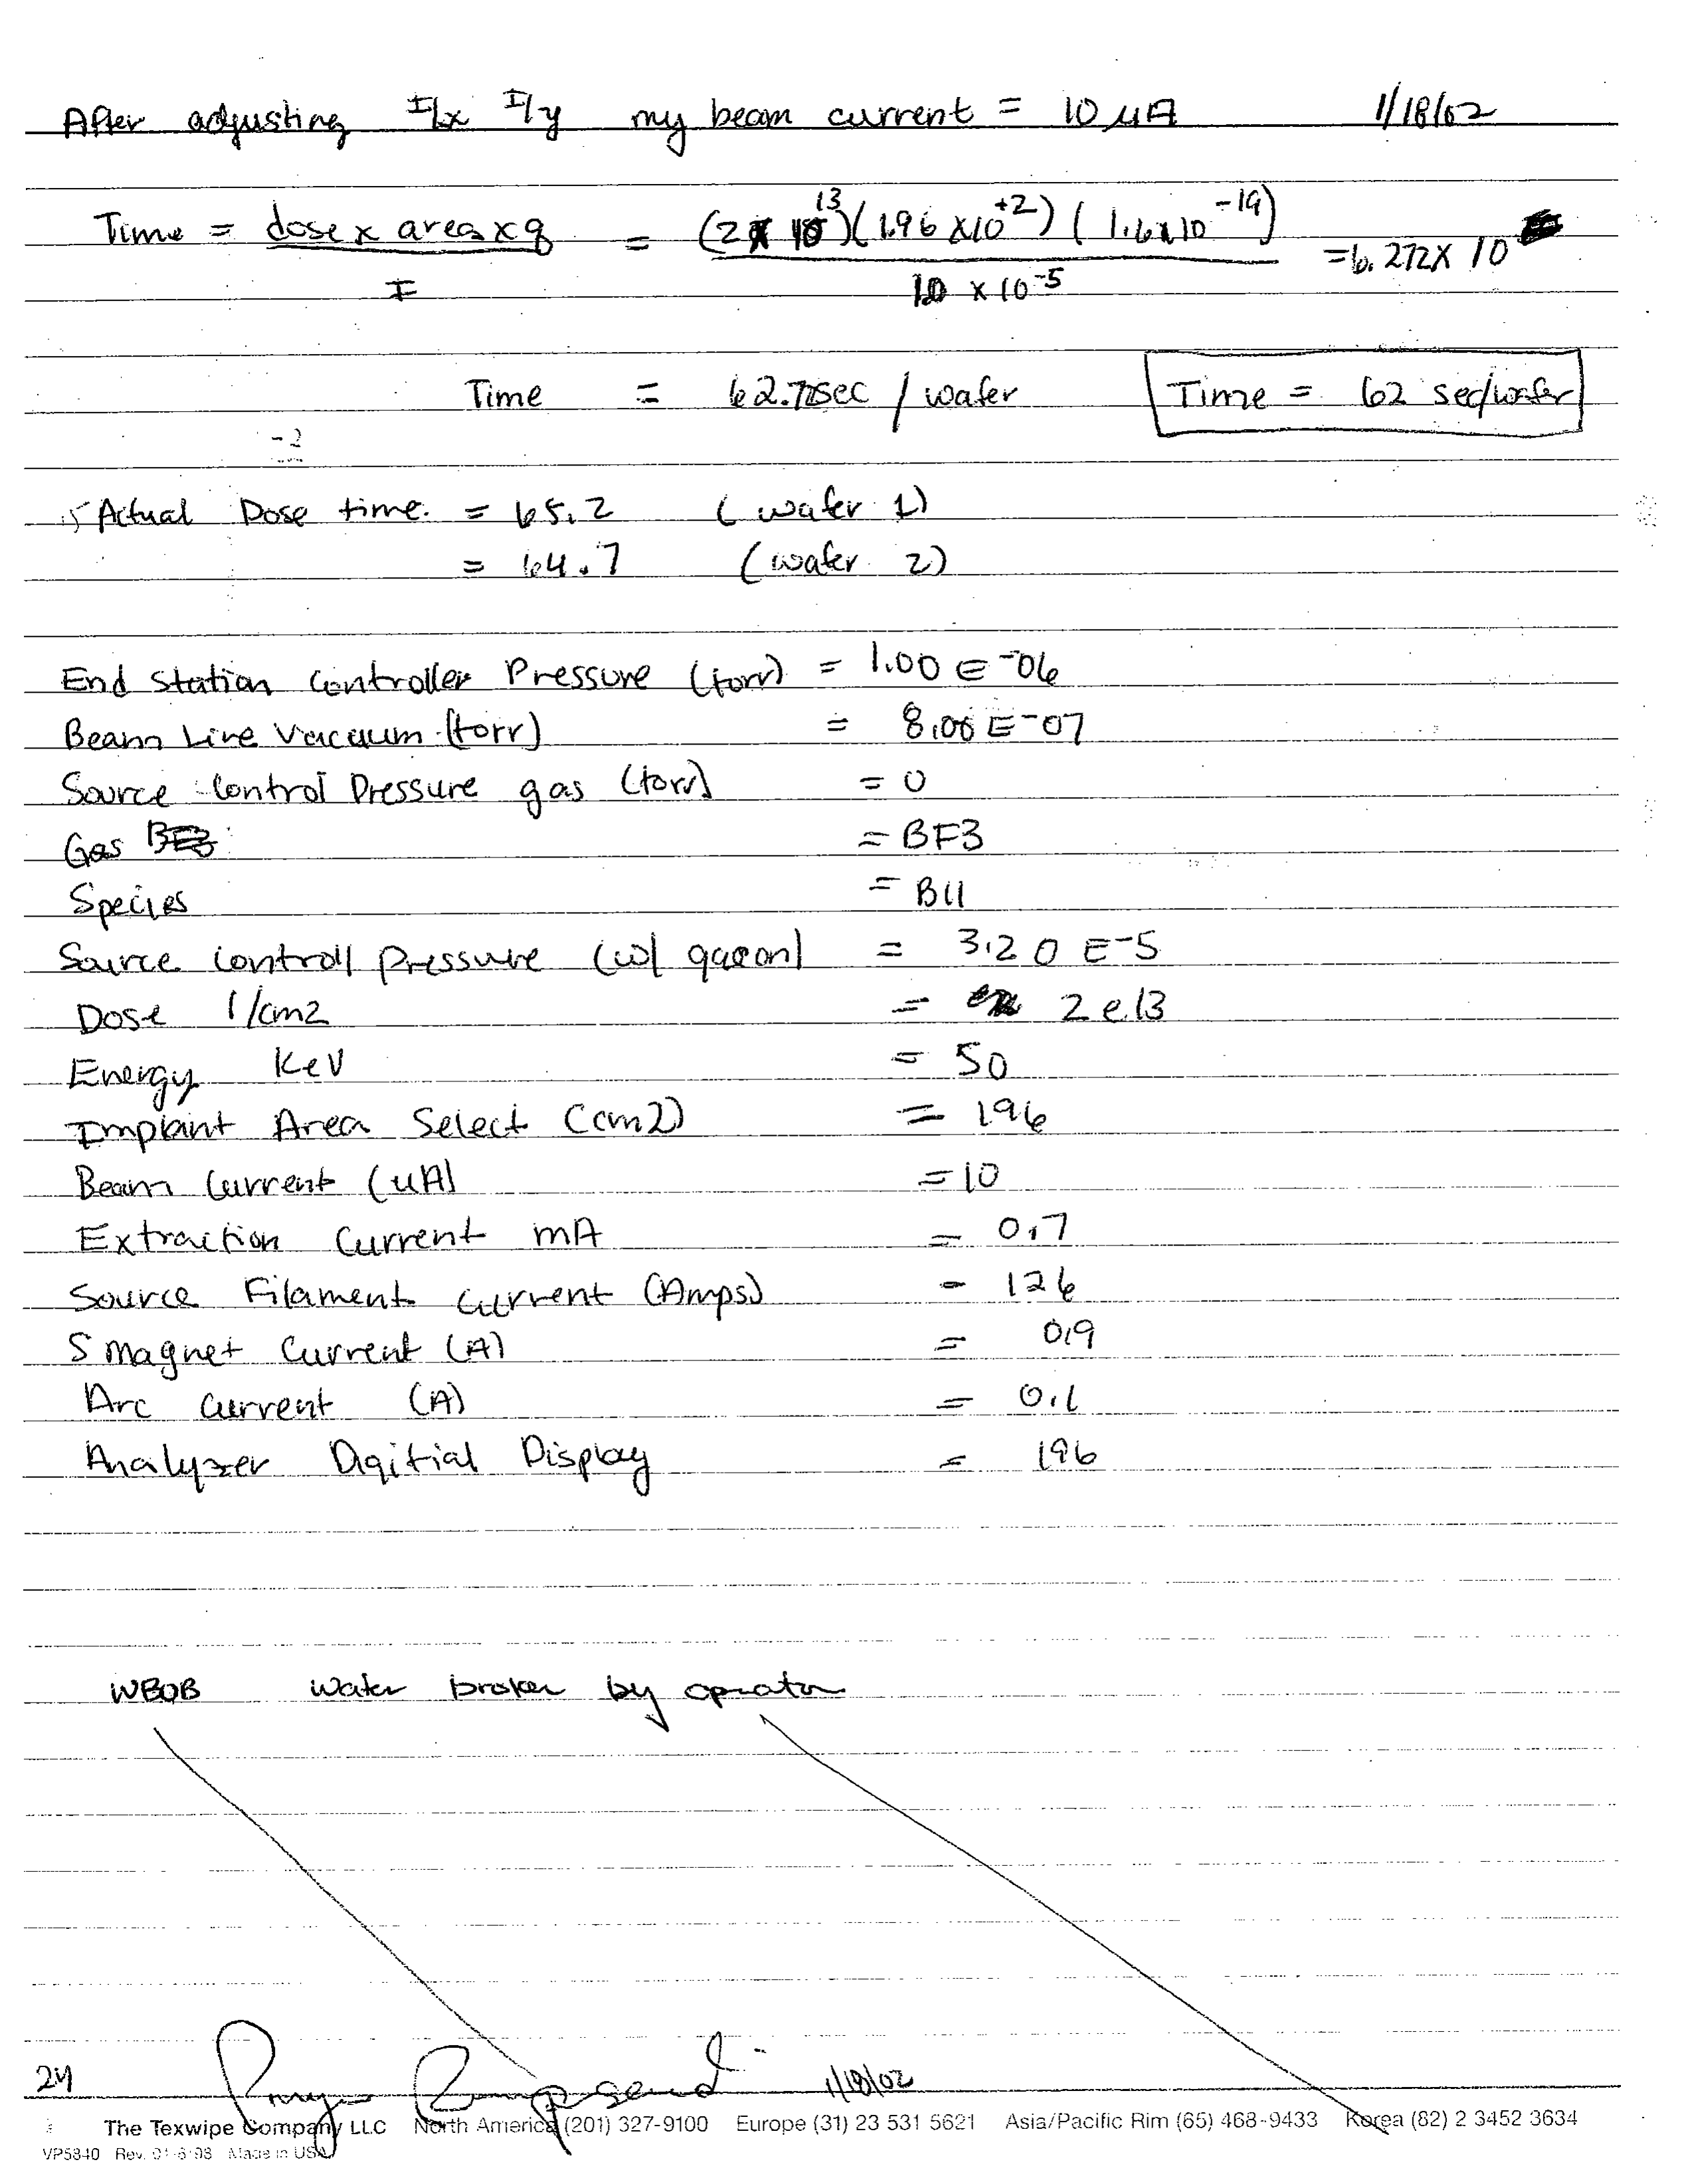 After adjusting I/x I/y my beam current = 10 uA 1/18/02
Time = dose x area x q / I = (2 x 10^13)(1.96 x10^+2)(1.6x10^-19) / 1.0 x 10^-5 = 6.272 x 10
Time = 62.72sec / wafer Time = 62 sec/wafer
-2
Actual Dose time. = 65.2 (wafer 1)
= 64.7 (wafer 2)
End Station Controller Pressure (torr) = 1.00 E -06
Beam Line Vacuum (torr) = 8.00 E-07
Source Control Pressure gas (torr) = 0
Gas BF3 = BF3
Species = B11
Source Controll Pressure (w/ gas on) = 3.20 E-5
Dose 1/cm2 = 2 e13
Energy KeV = 50
Implant Area Select (cm2) = 196
Beam Current (uA) = 10
Extraction Current mA = 0.7
Source Filament Current (Amps) = 126
S Magnet Current (A) = 0.9
Arc Current (A) = 0.1
Analyzer Digitial Display = 196
WBOB Wafer broken by operator
24 1/18/02
The Texwipe Company LLC North America (201) 327-9100 Europe (31) 23 531 5621 Asia/Pacific Rim (65) 468-9433 Korea (82) 2 3452 3634
VP5840 Rev. 01-6-98 Made in USA